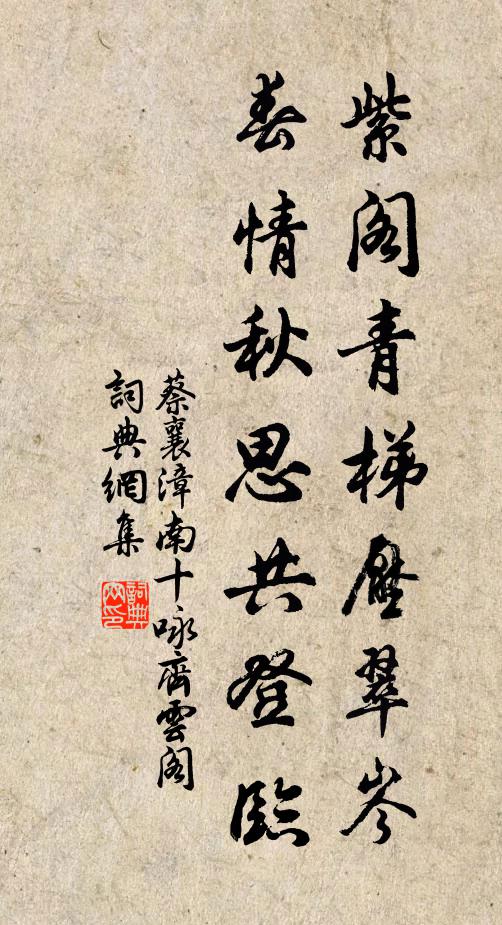 紫阁青梯壓翠岑
春情秋思共登臨
蔡襄漳南十咏齊雲阁
詞典網集
詞典网印